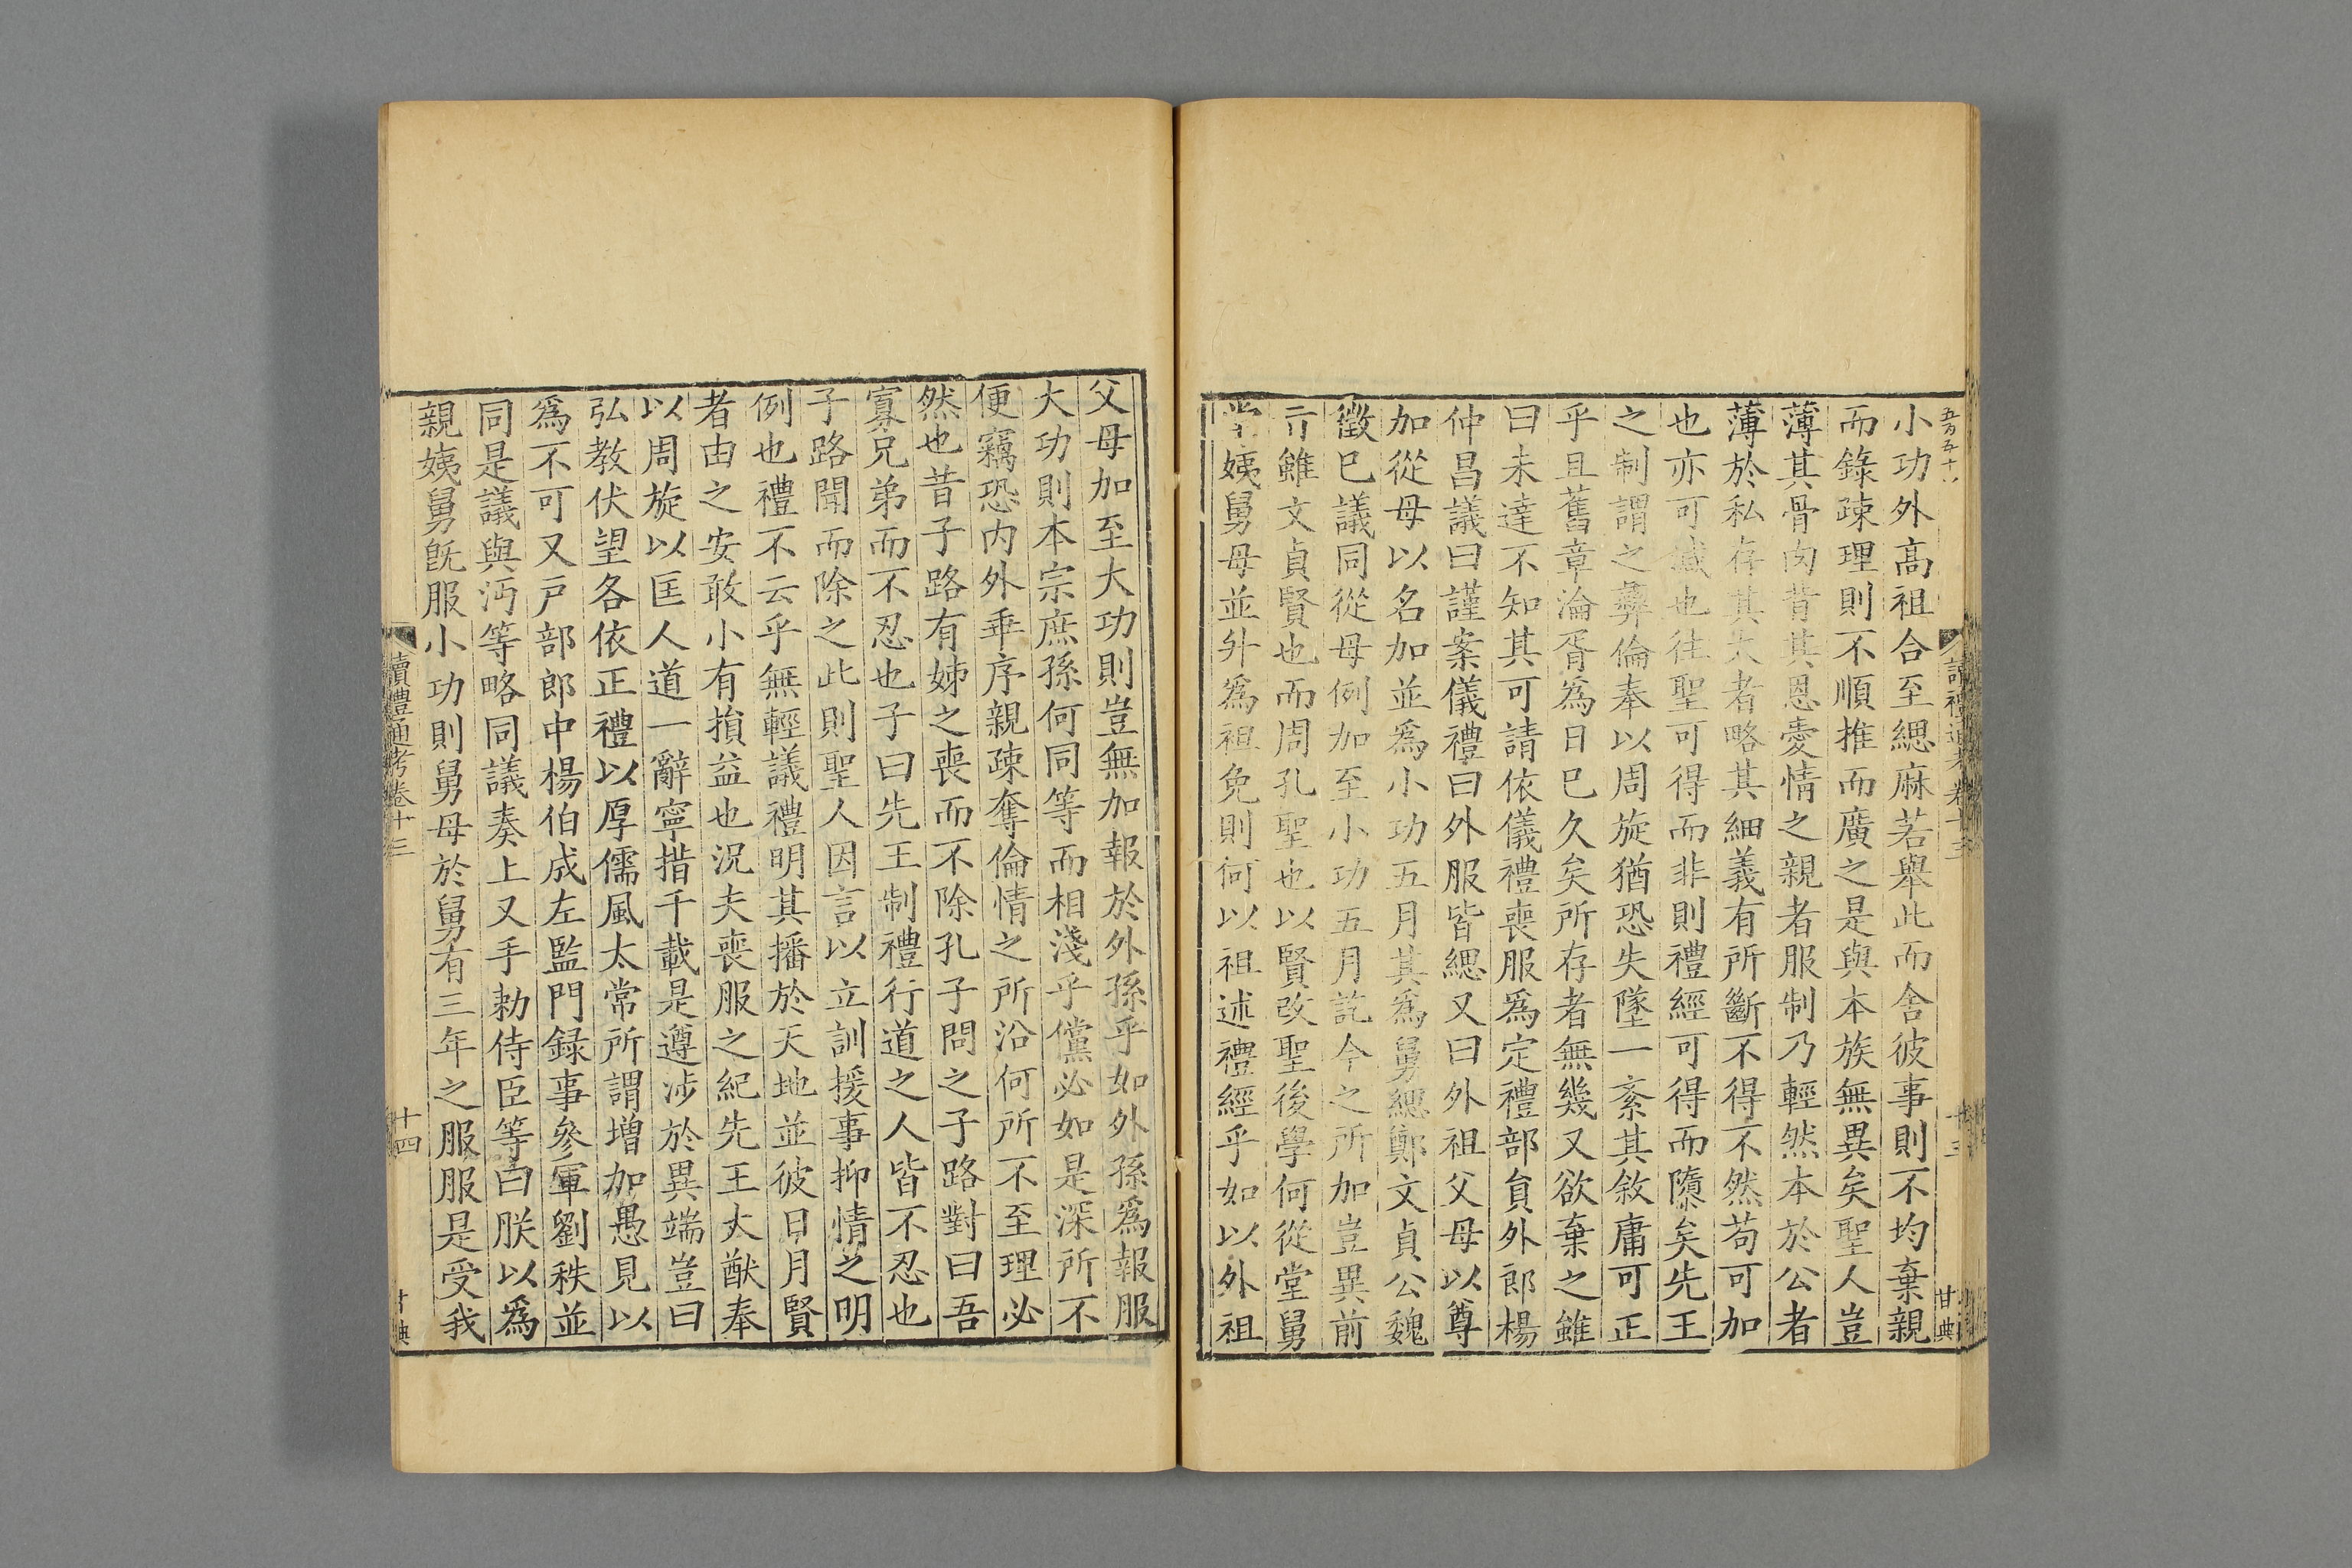 小功外高祖合至緦麻若舉此而舍彼事則不均棄親
而錄疎理則不順推而廣之是與本族無異矣聖人豈
薄其骨肉背其恩愛情之親者服制乃輕然本於公者
薄於私存其大者略其細義有所斷不得不然苟可加
也亦可減也往聖可得而非則禮經可得而隳矣先王
之制謂之彝倫奉以周旋猶恐失墜一紊其敘庸可正
乎且舊章淪胥為日已久矣所存者無幾又欲棄之雖
曰未達不知其可請依儀禮喪服爲定禮部貟外郎楊
仲昌議曰謹案儀禮曰外服皆緦又曰外祖父母以尊
加從母以名加並爲小功五月其爲舅緦鄭文貞公魏
徵已議同從母例加至小功五月訖今之所加豈異前
雖文貞賢也而周孔聖也以賢改聖後學何從堂舅
堂姨舅母並升爲袒免則何以祖述禮經乎如以外祖
讀禮通考卷十三
甘典
父母加至大功則豈無加報於外孫乎如外孫爲報服
大功則本宗庶孫何同等而相淺乎儻必如是深所不
便竊恐內外乖序親疎奪倫情之所沿何所不至理必
然也昔子路有姊之喪而不除孔子問之子路對曰吾
寡兄弟而不忍也子曰先王制禮行道之人皆不忍也
子路聞而除之此則聖人因言以立訓援事抑情之明
例也禮不云乎無輕議禮明其播於天地並彼日月賢
者由之安敢小有損益也況夫喪服之紀先王大猷奉
以周旋以匡人道一辭寧措千載是遵涉於異端豈曰
弘教伏望各依正禮以厚儒風太常所謂增加愚見以
爲不可又戶部郎中楊伯成左監門録事參軍劉秩並
同是議與沔等略同議奏上又手勅侍臣等曰朕以爲
親姨舅旣服小功則舅母於舅有三年之服服是受我
讀禮通考卷十三
十四
甘典